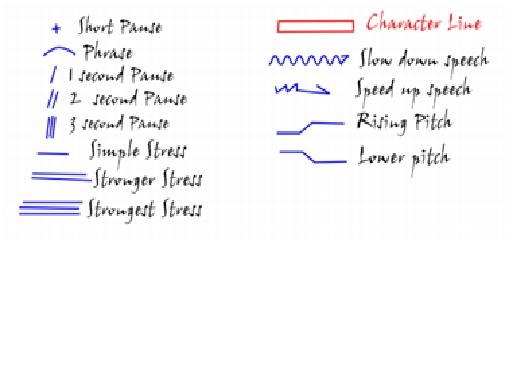 Short Pause
Phrase
1 second Pause
2 second Pause
3 second Pause
Simple Stress
Stronger Stress
Strongest Stress
Character Line
Slow down speech
Speed up speech
Rising Pitch
Lower pitch